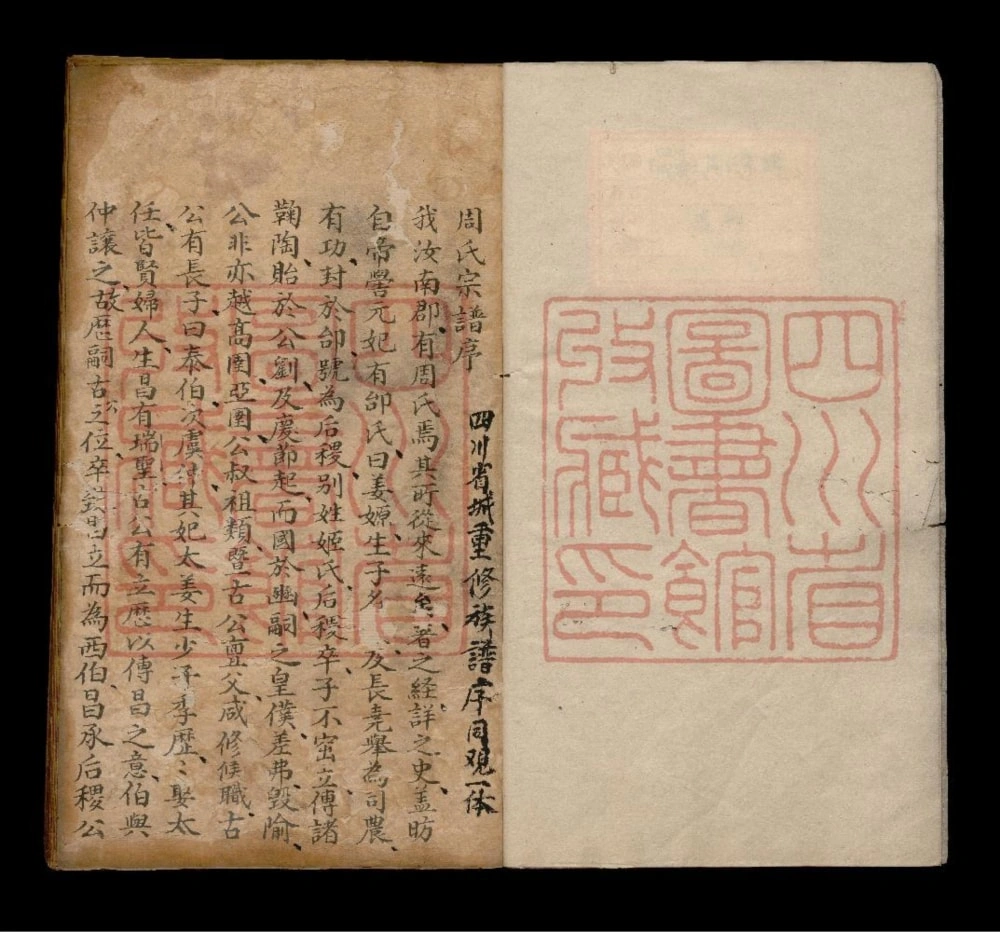 四川省
圖書館
收藏印
四川省城重修族譜序同观一体
周氏宗譜序
我汝南郡有周氏焉其所從來遠矣著之経詳之史盖昉
自帝嚳元妃有邰氏曰姜嫄生子名 及長堯舉為司農
有功封於邰號為后稷别姓姬氏后稷卒子不窋立傳諸
鞠陶貽於公劉及慶節起而國於豳嗣之皇僕差弗毀隃
公非亦越髙圉亞圉公叔祖類暨古公亶父咸修候職古
公有長子曰泰伯次虞仲其妃太姜生少子季歷〻娶太
任皆賢婦人生昌有瑞聖古公有立歷以傳昌之意伯與
仲讓之故歷嗣古公之位卒昌立而為西伯昌承后稷公